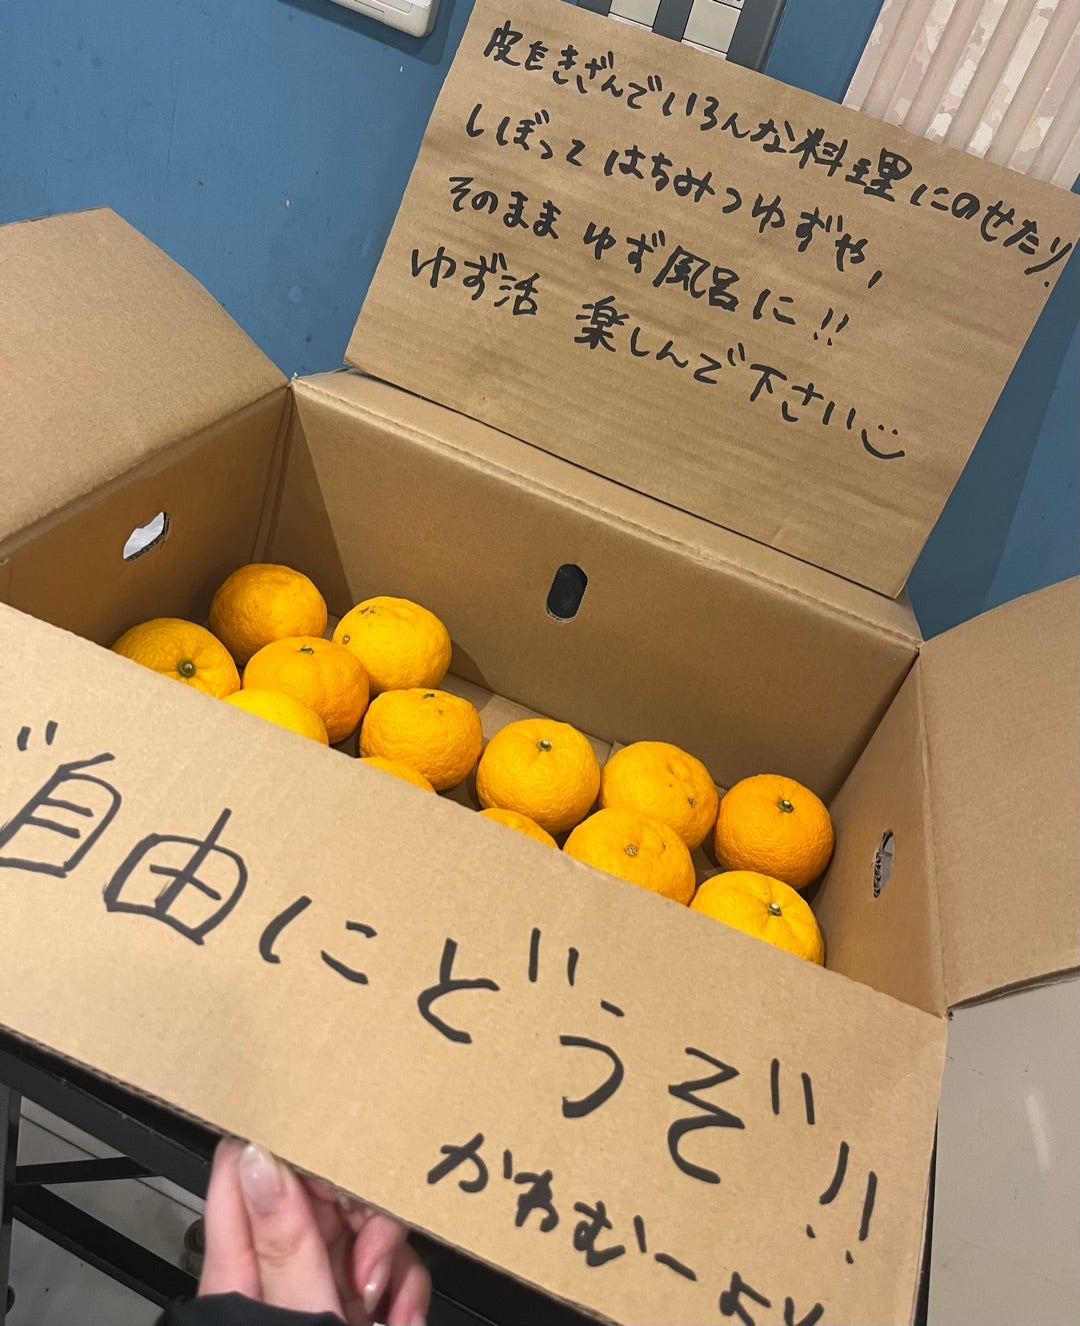 皮をきざんでいろんな料理にのせたり
しぼってはちみつゆずや,
そのままゆず風呂に!!
ゆず活 楽しんで下さい
ご自由にどうぞ!!
かわむーより